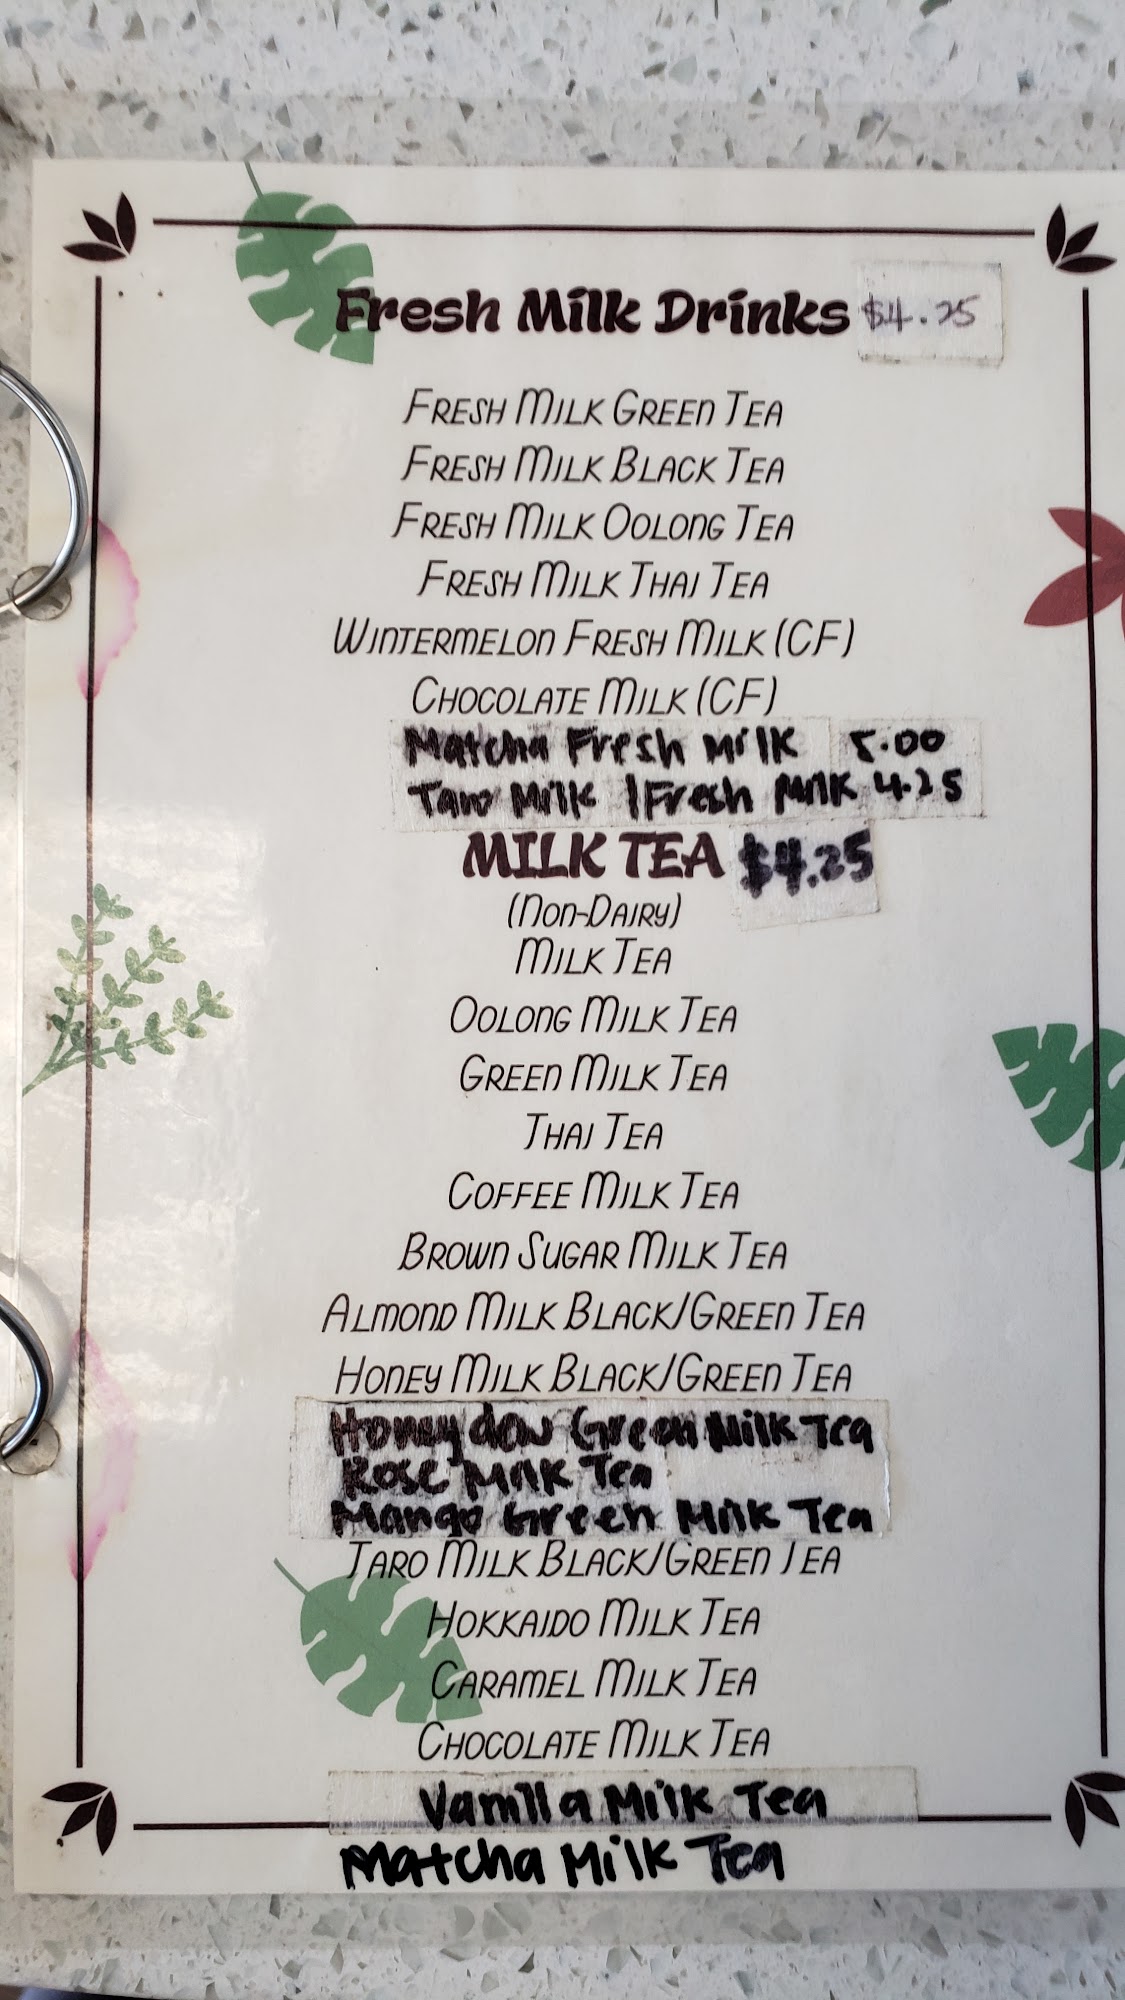 Fresh Milk Drinks $4.25
Fresh Milk Green Tea
Fresh Milk Black Tea
Fresh Milk Oolong Tea
Fresh Milk Thai Tea
Wintermelon Fresh Milk (CF)
Chocolate Milk (CF)
Matcha Fresh Milk 5.00
Taro Milk /Fresh Milk 4.25
MILK TEA $4.25
(Non-Dairy)
Milk Tea
Oolong Milk Tea
Green Milk Tea
Thai Tea
Coffee Milk Tea
Brown Sugar Milk Tea
Almond Milk Black/Green Tea
Honey Milk Black/Green Tea
Honeydew Green Milk Tea
Rose Milk Tea
Mango Green Milk Tea
Taro Milk Black/Green Tea
Hokkaido Milk Tea
Caramel Milk Tea
Chocolate Milk Tea
Vanilla Milk Tea
Matcha Milk Tea